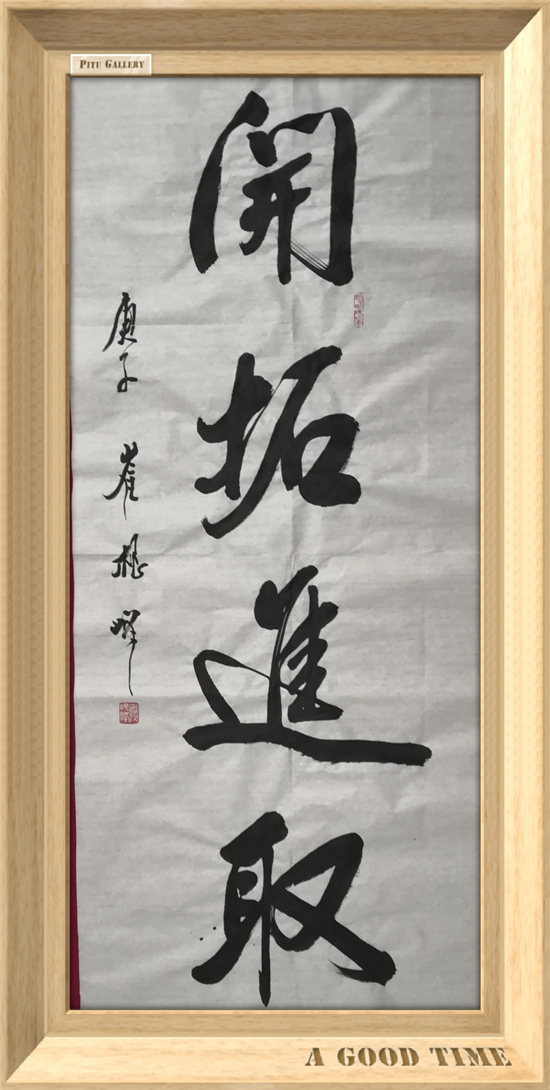 PITU GALLERY
開拓進取
庚子 崔振
A GOOD TIME